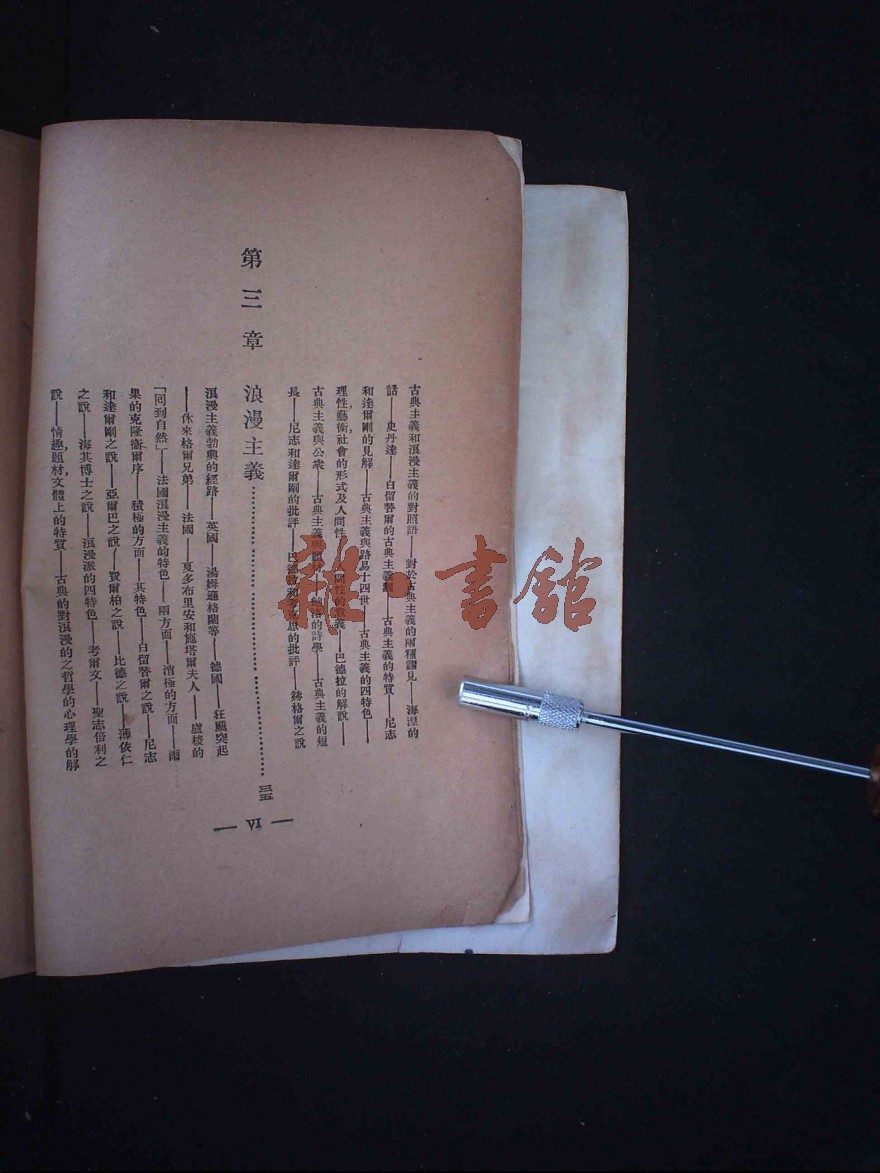 古典主義和浪漫主義的對照語——對於古典主義的兩種謬見——海湼的
話——史丹達——白留帶爾的古典主義觀——古典主義的特質——尼志
和達爾剛的見解——古典主義與路易十四世——古典主義的四特色——
理性,藝術,社會的形式及人間性——人間性的意義——巴德拉的解說——
古典主義與公衆——古典主義與題材——的詩學——古典主義的短
長——尼志和達爾剛的批評——的批評——赫格爾之說
第三章 浪漫主義……三五
浪漫主義勃興的經路——英國——湯姆遜格蘭等——德國——狂飇突起
——休來格爾兄弟——法國——夏多布里安和施塔爾夫人——盧梭的
「囘到自然」——法國浪漫主義的特色——兩方面——消極的方面——雨
果的克隆衞爾序——積極的方面——其特色——白留帶爾之說——尼志
和達爾剛之說——亞爾巴之說——費爾柏之說——比德之說——薄依仁
之說——海其博士之說——浪漫派的四特色——考爾文——聖志倍利之
說——情趣,題材,文體上的特質——古典的對浪漫的之哲學的心理學的解
— VI —
雜·書館